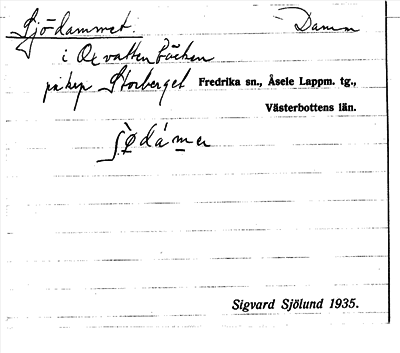 Sjödammet. Damm
i Oxvattenbäcken
på hyp Storberget Fredrika sn., Åsele Lappm. tg.,
Västerbottens län.
Sigvard Sjölund 1935.